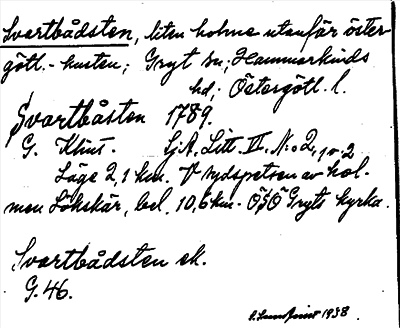 Svartbådsten, liten holme utanför öster-
götl.-kusten; Gryt sn; Hammarkinds
hd; Östergötl. l.
Svartbåsten 1789.
G. Klint. Sj.A. Litt. VI. N:o 2, 1 o. 2
Läge 2,1 km. V sydspetsen av hol-
men Lökskär, bel. 10,6 km. ÖSÖ Gryts kyrka.
Svartbådsten ek.
G. 46.
1938